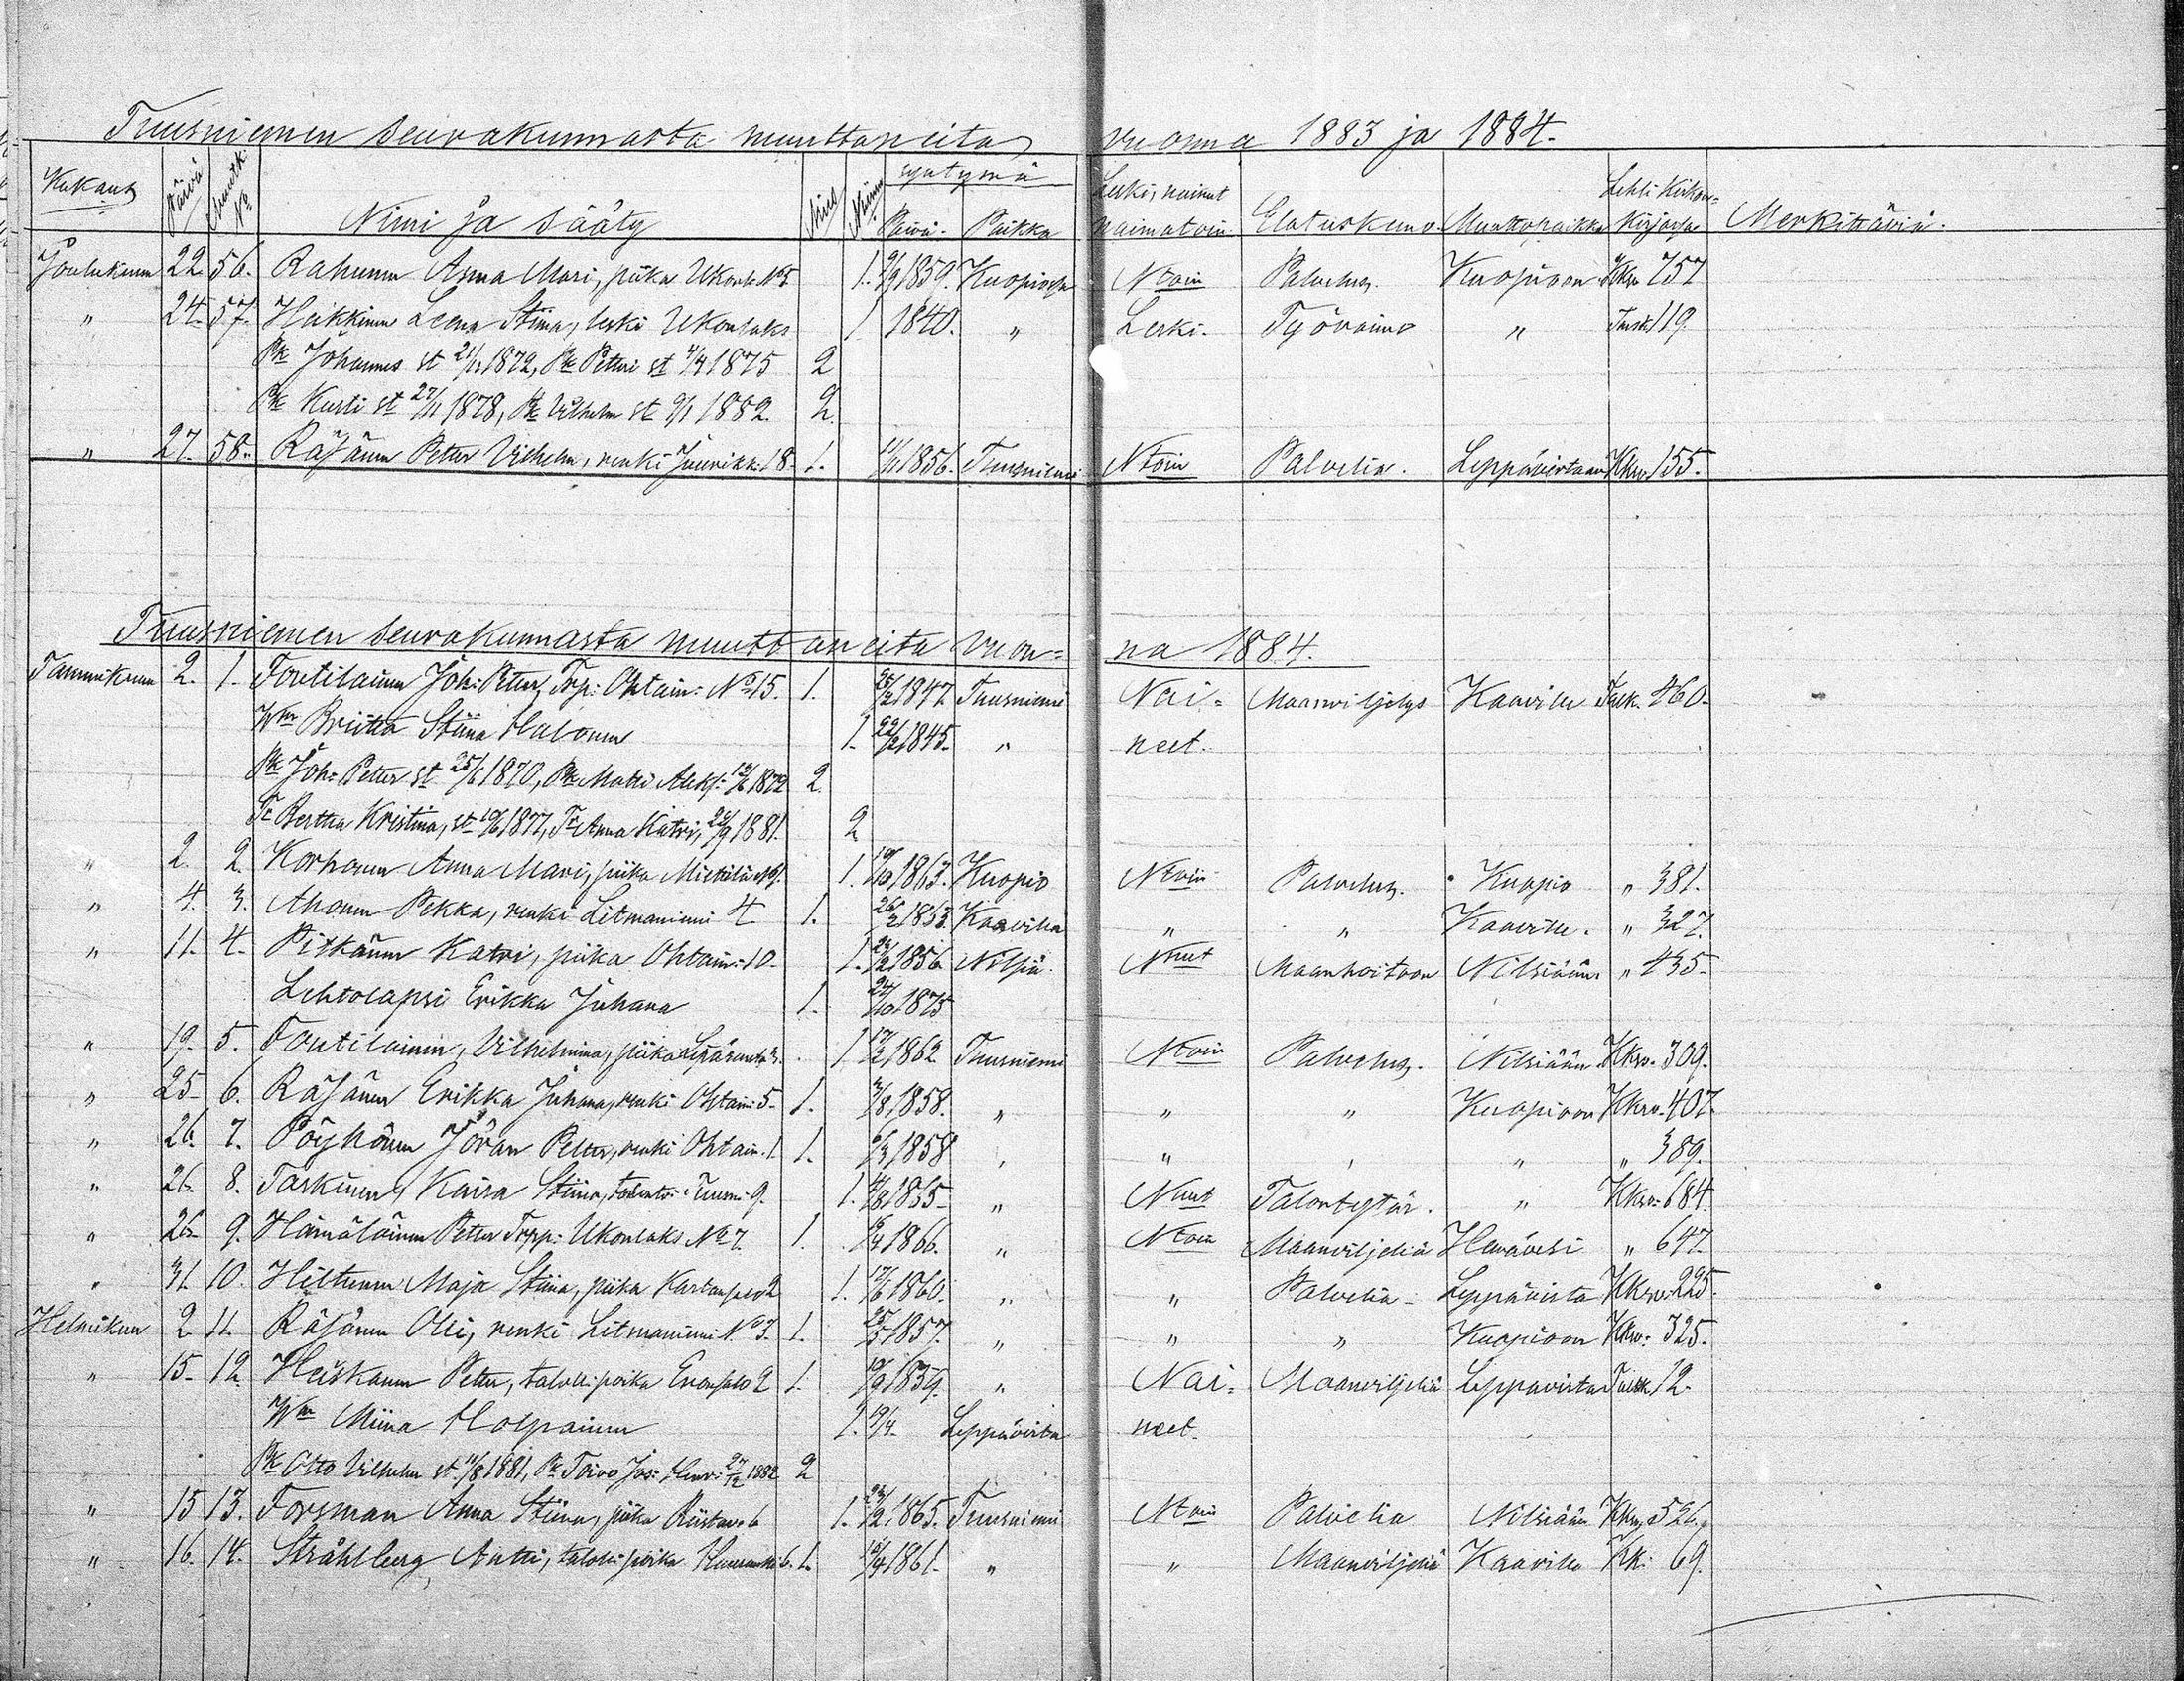 Tuusniemen seurakunnasta muuttaneita vuonna 1883 ja 1884.
Kukausi Päivä Nimi ja sääty Mies syntymä Päivä Paikka Leski, nainut naimatoin Elatuskeino Muuttopaikka Lehti Kirkonkirjassa Merkittäviä.
Joulukuun 22 56. Rahunen Anna Mari, piika Ukonl. No 5 1. 1859. Kuopiossa Ntoin Palvelus. Kuopioon Kkrv 757
" 24. 57. Heikkinen Leena Stiina, leski Ukonlaks 1 1840. " Leski. Työvaimo " 119.
Pk Johannes st 1872, Pk Petteri st 4/4 1875 2
Pk Kusti st 27/11 1878, Pk Vilhelm st 9/1 1882. 2.
" 27. 58. Räsänen Petter Vilhelm, renki Juurikk: 18. 1. 1856. Tuusniemi Ntoin Palvelia. Leppävirtaan Kkrv. 155.
Tuusniemen seurakunnasta muuttaneita vuon= na 1884.
Tammikuun 2. 1. Toutilainen Joh: Petter, Trp: Ohtain: No 15. 1. 1847 Tuusniemi Nai= Maanviljelys Kaaville Talk. 460.
Wm Briitta Stiina Halonen 1. 22/2 1845. " neet.
Pk Joh= Petter st 25/6 1870, Pk Matti Aleks: 12/6 1872 2.
Tr Bertha Kristina, st 10/6 1877, Tr Anna Katri, 1881. 2
" 2. 2. Korhonen Anna Mari, piika 1. 19/10 1863. Kuopio Ntoin Palvelus. Kuopio " 381.
" 4. 3. Ahonen Pekka, renki Litmaniemi 4 1. 26/2 1863. Kaavilla " " Kaaville. " 327.
" 11. 4. Pitkänen Katri, piika Ohtain: 10. 1. 1856. Nilsiä. Nnut Maanhoitoon Nilsiään " 435.
Lehtolapsi Erikka Juhana 1. 24/10 1875
" 19. 5. Toutilainen, Vilhelmina, piika 1 17/2 1862 Tuusniemi Ntoin Palvelus. Nilsiään Kkrv. 309.
" 25. 6. Räsänen Erikka Juhana, renki Ohtain: 5. 1. 1858. " " " Kuopioon Kkrv. 407.
" 26. 7. Pöyhönen Jöran Petter, renki Ohtain. 1. 1. 6/3 1858 " " " " " 389.
" 26. 8. Taskinen, Kaisa Stiina, Tuusni. 9. 1. 1865. " Nnut Talontytär. " Kkrv. 684.
" 26. 9. Hämäläinen Petter Trpp: Ukonlaks No 7. 1. 1866. " Ntoin Maanviljeliä Heinävesi " 647.
" 31. 10. Hiltunen Maja Stiina, piika 2 1. 17/6 1860. " " Palvelia. Leppävirta Kkrv. 225.
Helmikuun 2 11. Räsänen Olli, renki Litmaniemi No 3. 1. 25/5 1857. " " " Kuopioon Kkrv. 325.
" 15. 12. Heiskanen Petter, talolli: poika Enonsalo 2 1. 1834. " Nai= Maanviljeliä Leppävirta Talk. 12.
Wm Miina Holpainen 1. 19/4. Leppävirta neet.
Pk Otto Vilhelm st. 11/8 1881, Pk Toivo Jos: Henr: 27/12 1882 2
" 15 13. Forsman Anna Stiina, piika Riistav. 6 1. 1865. Tuusniemi Ntoin Palvelia Nilsiään Kkrv. 526.
" 16. 14. Stråhlberg, Antti, talolli: poika 6. 1. 1861. " " Maanviljeliä Kaaville Kk: 69.